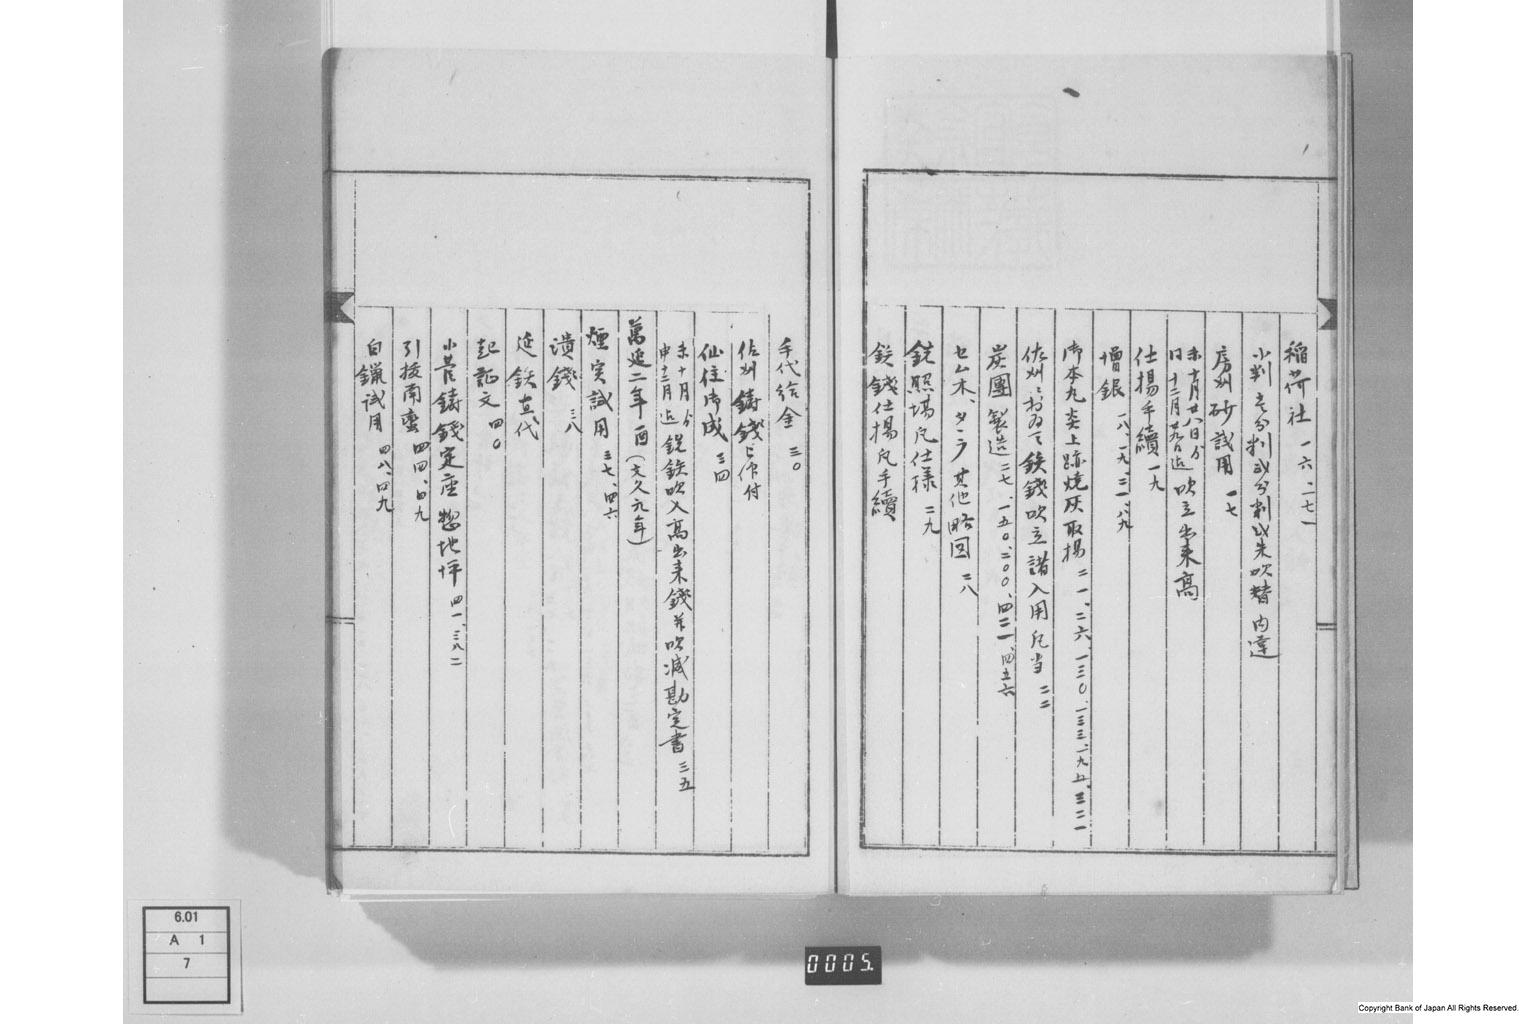 稲荷社 一六、二七一
小判壱分判弐分判弐朱吹替内達
房州砂試用 一七
未十月廿八日分
同十二月廿九日迄 吹立出来高
仕揚手續 一九
増銀 一八、一九、三一、八九
御本丸炎上跡焼灰取揚 二一、二六、一三〇、一三三、一九五、三二一
佐州ニおゐて鉄錢吹立諸入用凡当 二二
炭團製造 二七、一五〇、二〇〇、四二一、四五六
セム木、タラ其他略図 二八
銑照塲凡仕様 二九
鉄錢仕揚凡手續
手代給金 三〇
佐州鋳錢
仙住御成 三四
未十月分
申十二月迄 銑鉄吹入高出来錢并吹減勘定書 三五
萬延二年酉(文久元年)
煙突試用 三七、四六
潰錢 三八
延鉄直代
起証文 四〇
小菅鋳錢定座惣地坪 四一、三八二
引拔南蠻 四四、四九
白鑞試用 四八、四九
6.01
A 1
7
0005.
Copyright Bank of Japan All Rights Reserved.